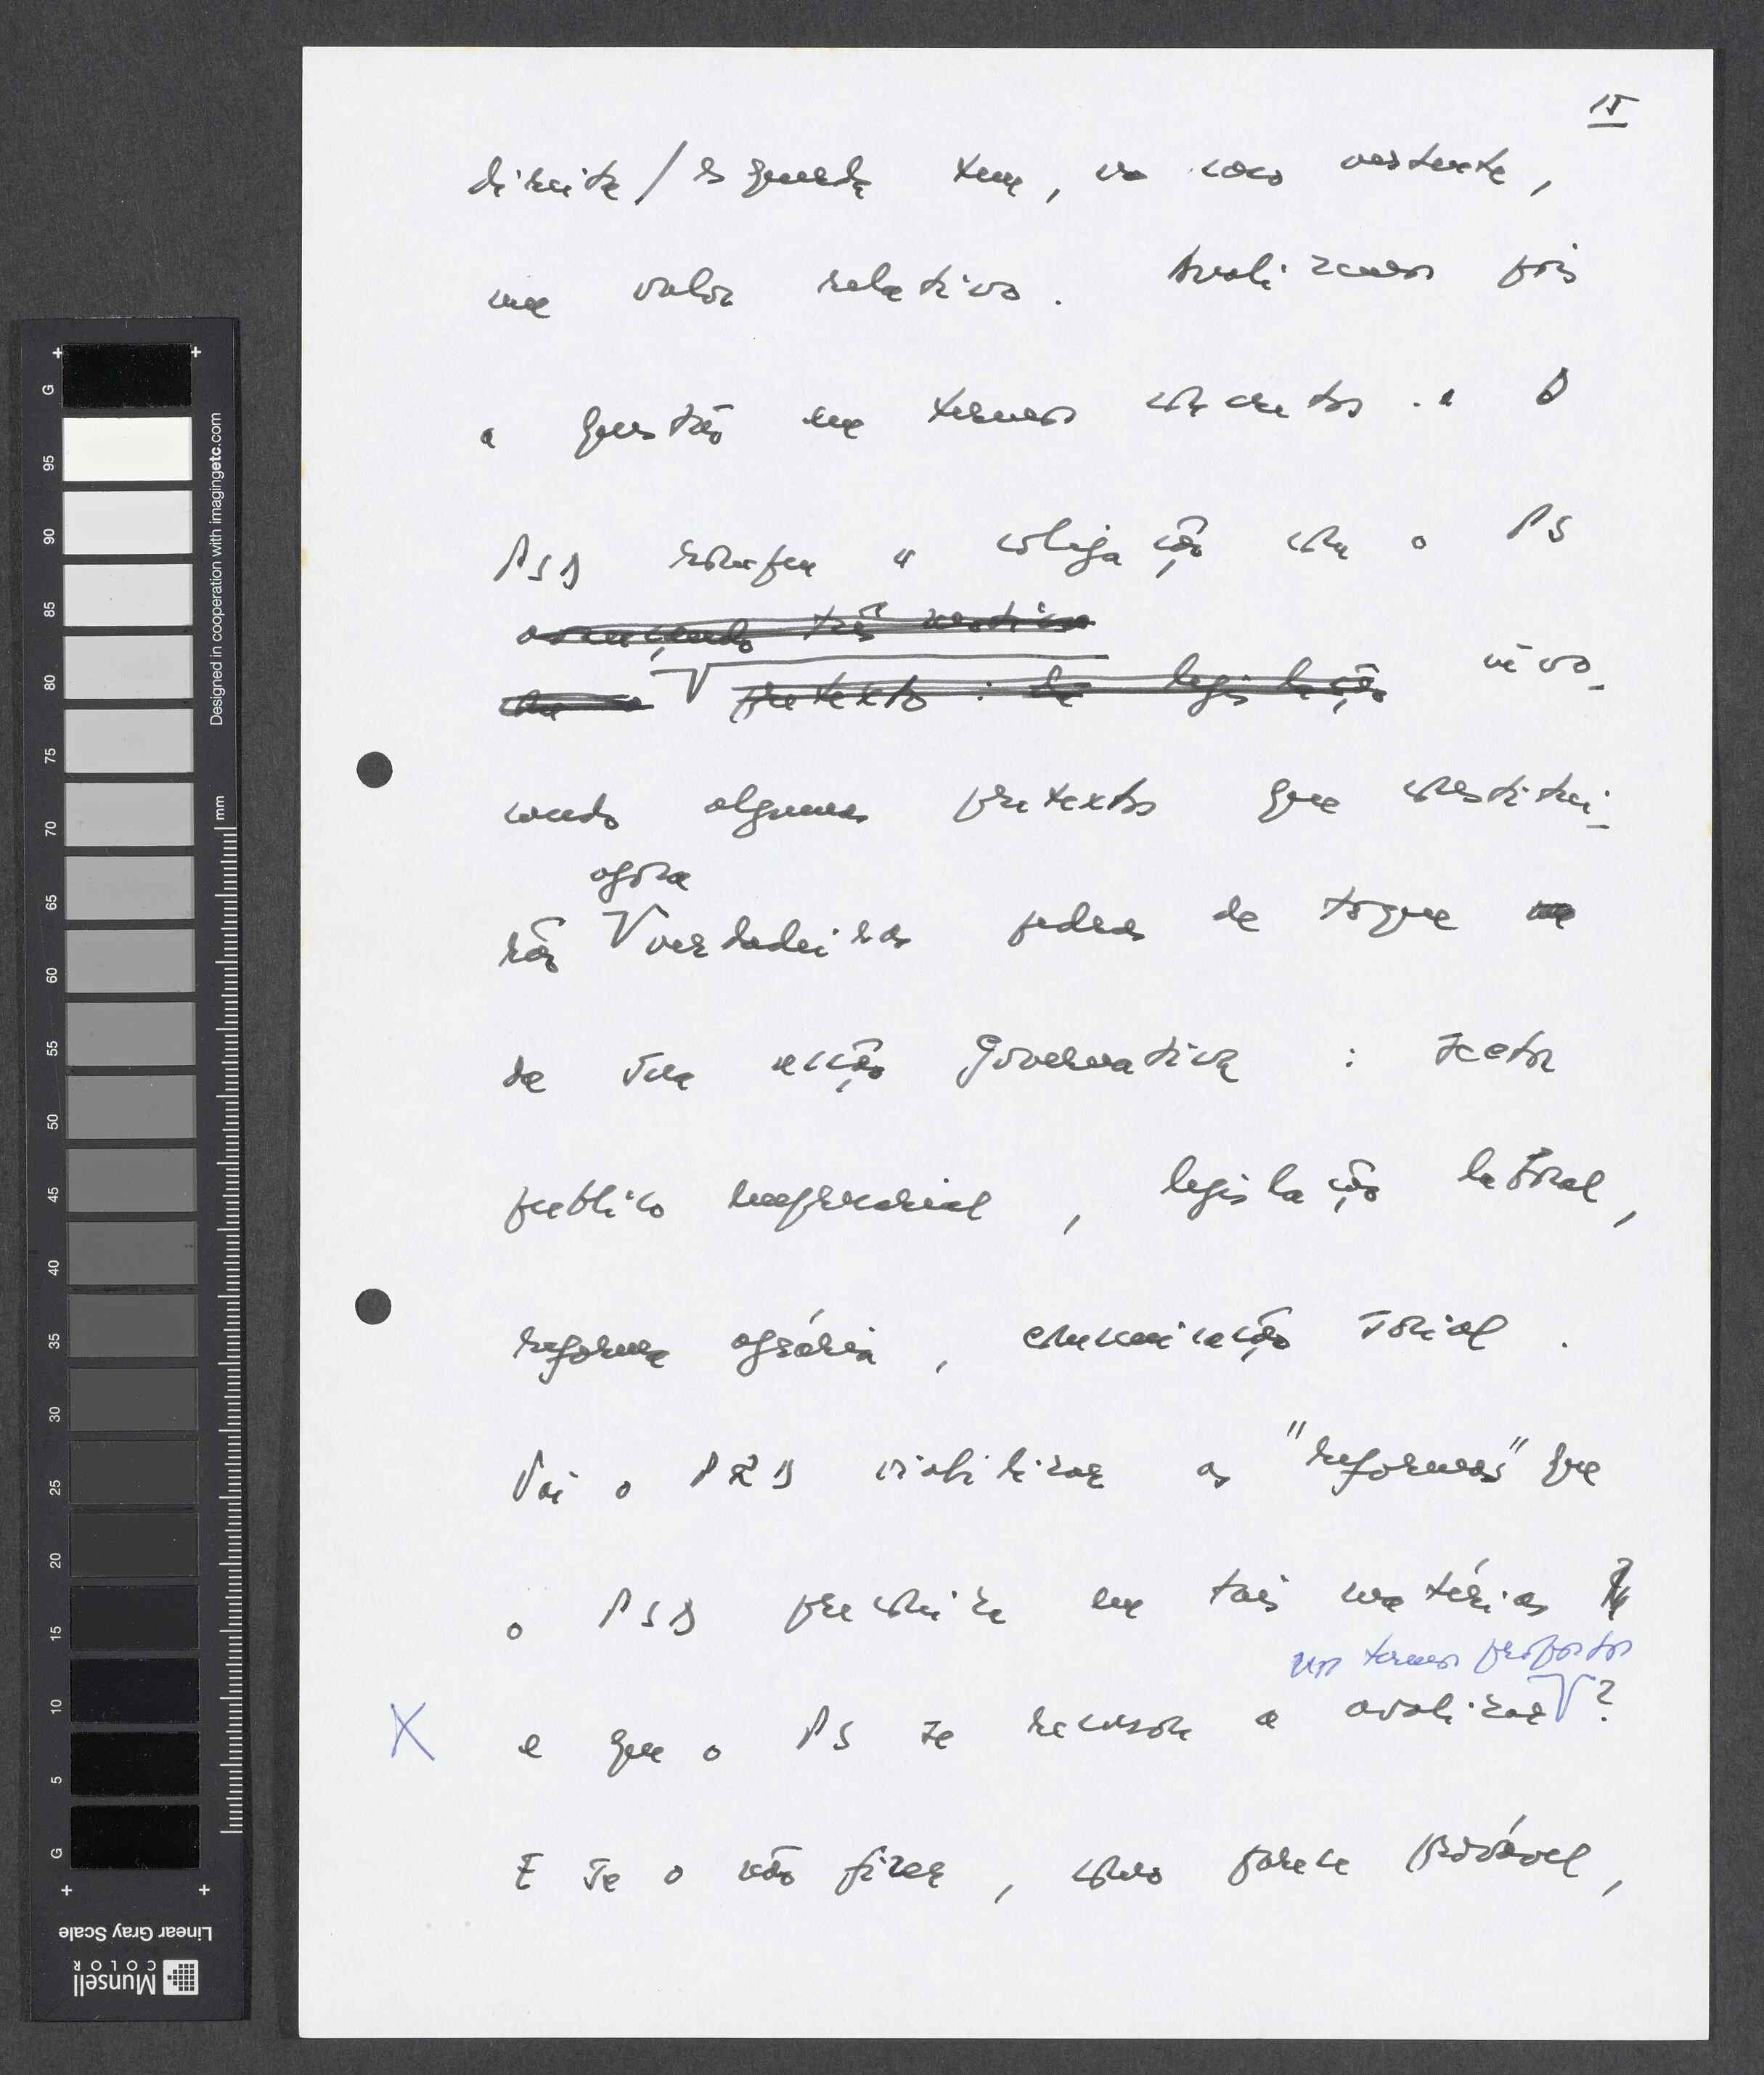 15
direita / esquerda tem, no caso vertente,
um valor relativo. Analizemos pois
a questão em termos concretos. O
PSD rompeu a coligação com o PS
invo-
cando algumas pretextos que constitui-
agora
rão verdadeiras pedras de toque
da sua acção governativa : sector
publico empresarial, legislação laboral,
reforma agrária, comunicação social.
Vai o PRD viabilizar as "reformas" que
o PSD preconiza em tais matérias
nos termos propostos
X e que o PS se recusou a avalizar ?
E se o não fizer, como parece provável,
G
95
90
85
80
75
70
65
60
55
50
45
40
35
30
25
20
15
10
5
G
mm
Designed in cooperation with imagingetc.com
Linear Gray Scale
Munsell
COLOR